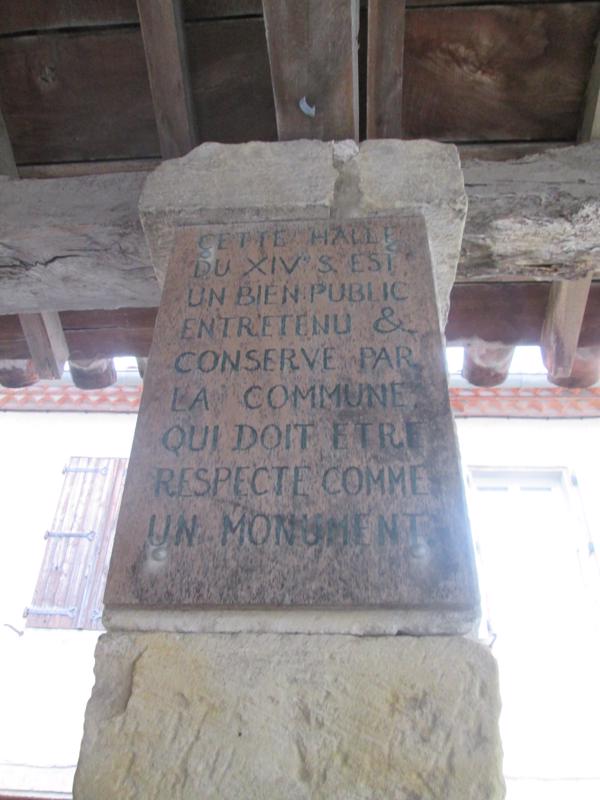 CETTE HALLE
DU XIVᵉ S. EST
UN BIEN PUBLIC
ENTRETENU &
CONSERVE PAR
LA COMMUNE.
QUI DOIT ETRE
RESPECTE COMME
UN MONUMENT.